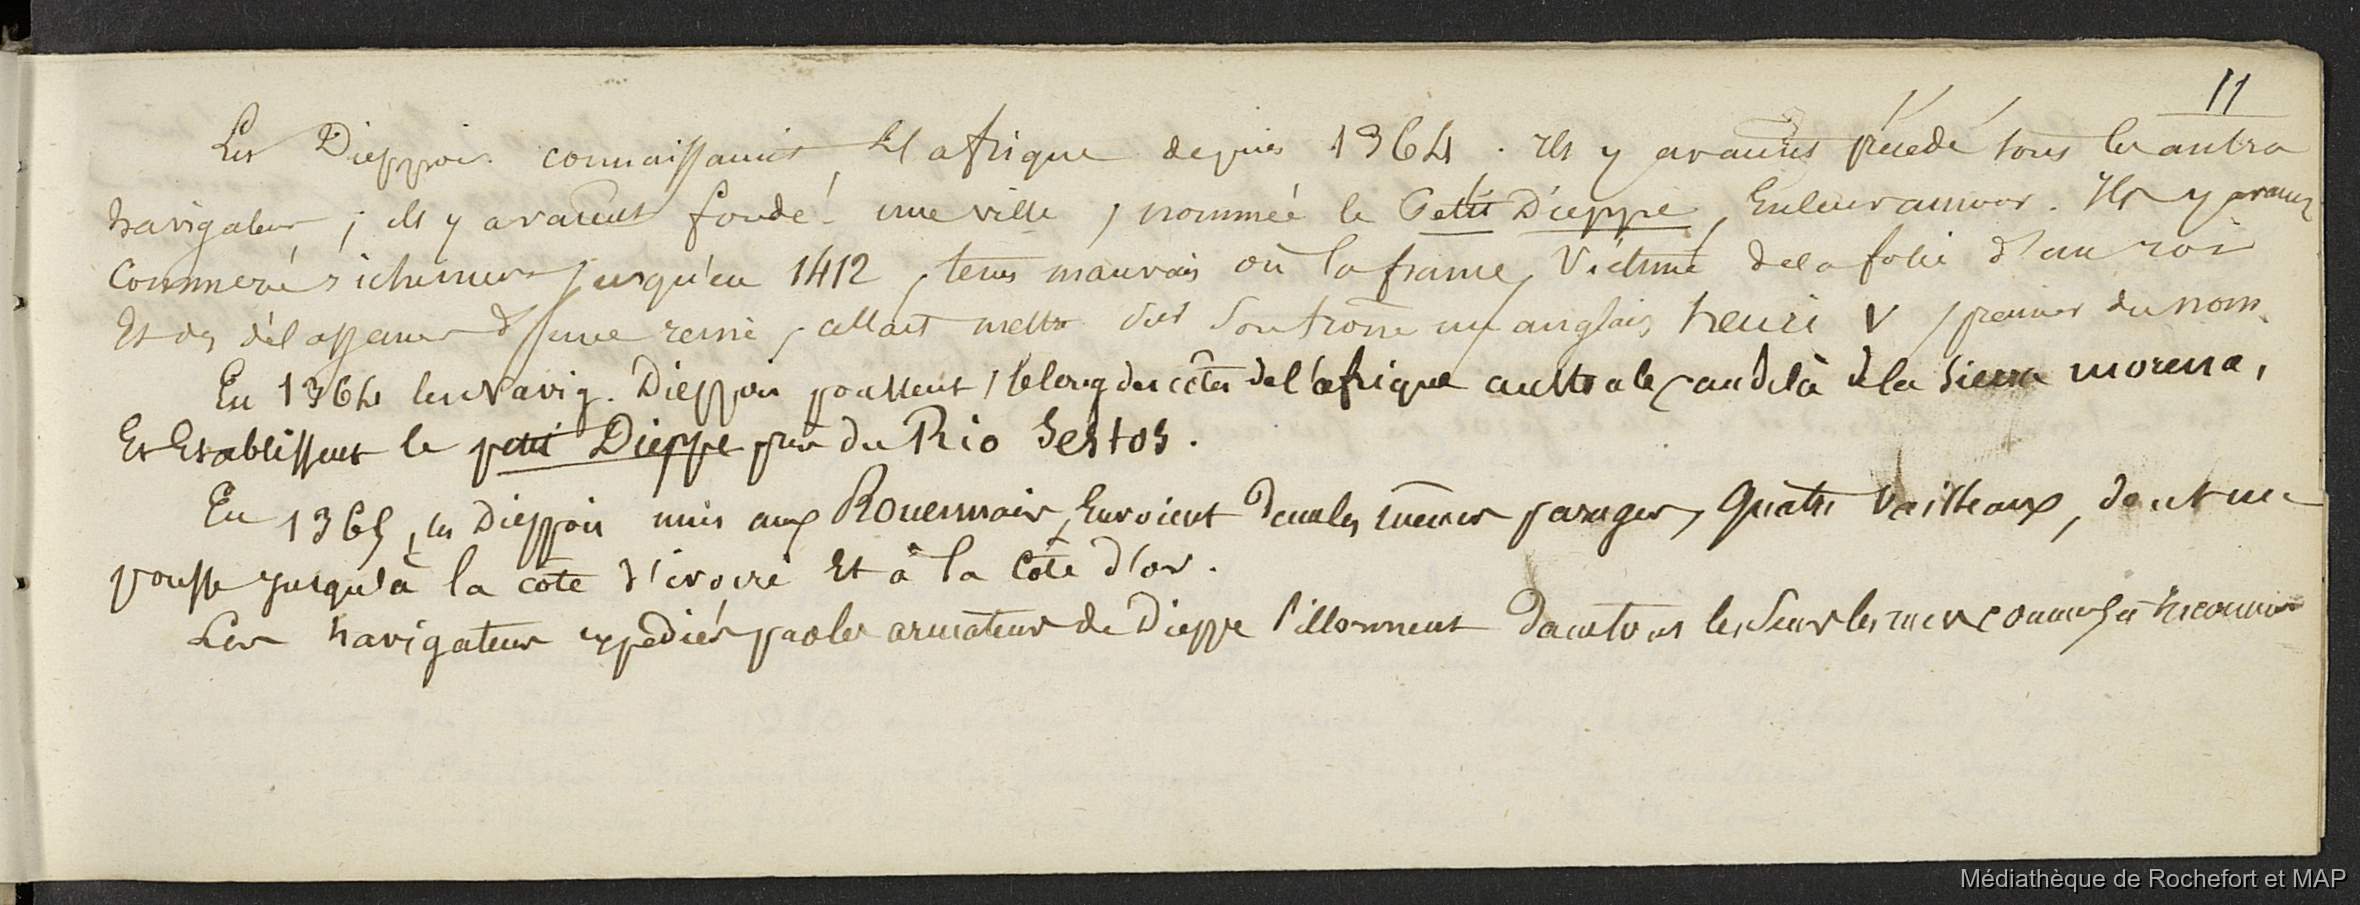 11
Les Dieppois connaissaient l'afrique depuis 1364. Ils y avaient précédé tous les autres
navigateurs ; ils y avaient fondé une ville, nommée le Petit Dieppe, Ils y avaient
commercé richement jusqu'en 1412, tems mauvais où la france, Victime de la folie d'un roi
Et des d'une reine, allait mettre sur son trône un anglais henri V, premier du nom.
En 1364 les Navig. Dieppois poussent, le long des côtes de l'afrique australe, au delà de la Sierra morena,
Et Etablissent le petit Dieppe près du Rio Sestos.
En 1365, les Dieppois unis aux Rouennais, Envoient dans les mêmes parages, quatre Vaisseaux, dont un
pousse jusqu'à la côte d'ivoire Et à la Côte d'or.
Les navigateurs expédiés par les armateurs de Dieppe sillonnent dans tous les Sens les mers connues et inconnues
Médiathèque de Rochefort et MAP